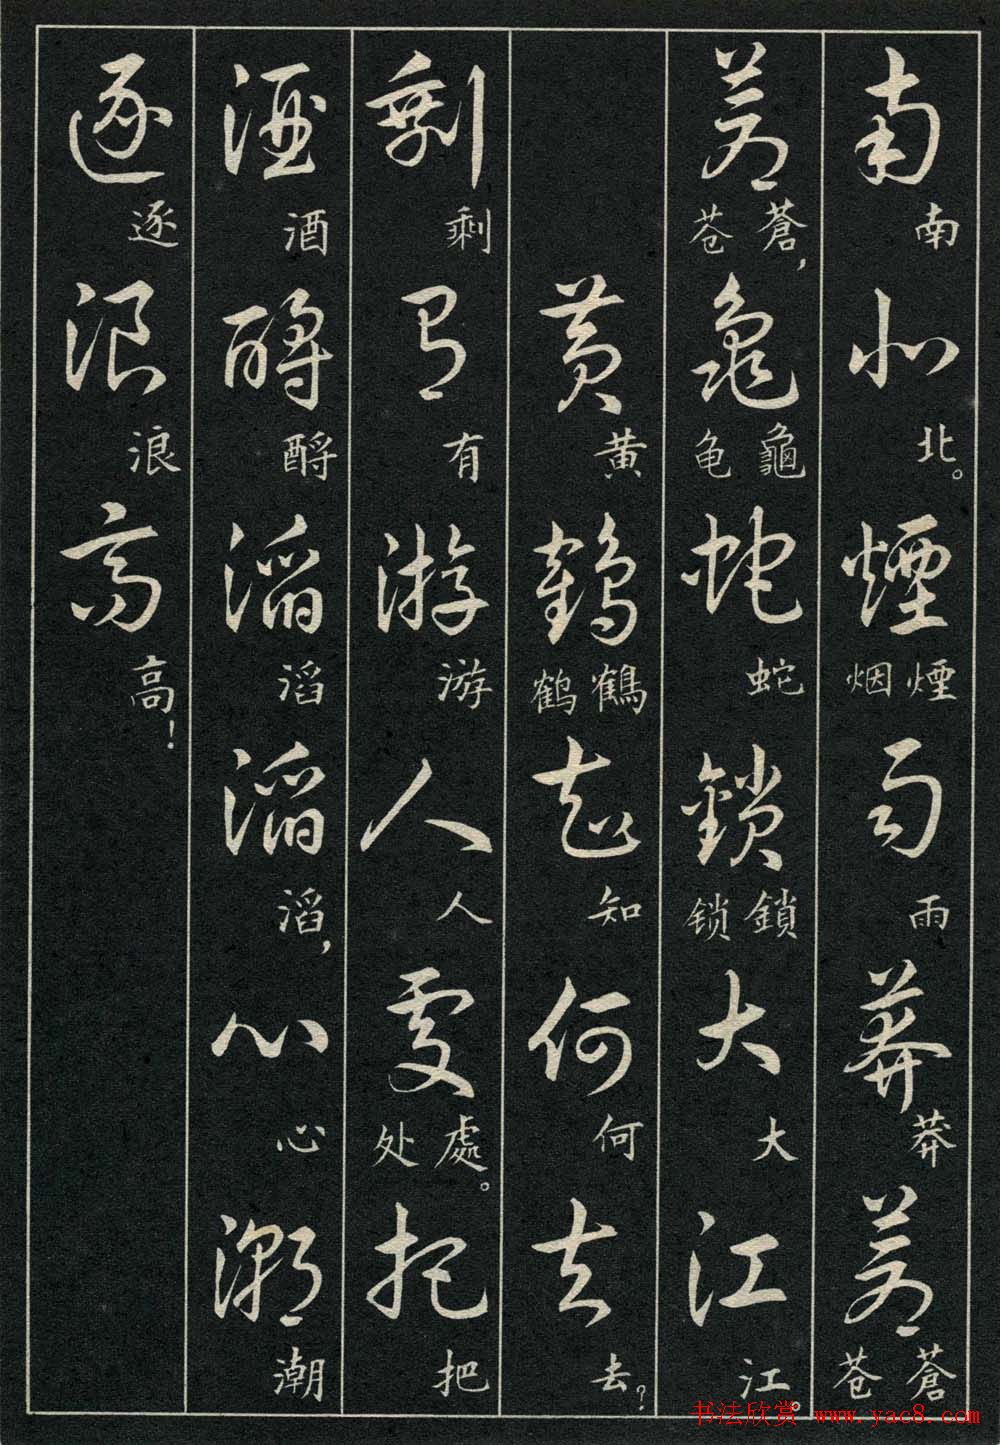 南 南 北 北。 煙 煙 烟 雨 雨 莽 莽 蒼 蒼 苍
蒼 蒼, 苍 龜 龜 龟 蛇 蛇 鎖 鎖 锁 大 大 江 江。
黄 黄 鶴 鶴 鹤 知 知 何 何 去 去?
剩 剩 有 有 游 游 人 人 處 處。 处 把 把
酒 酒 酹 酹 滔 滔 滔 滔, 心 心 潮 潮
逐 逐 浪 浪 高 高!
书法欣赏 www.yac8.com